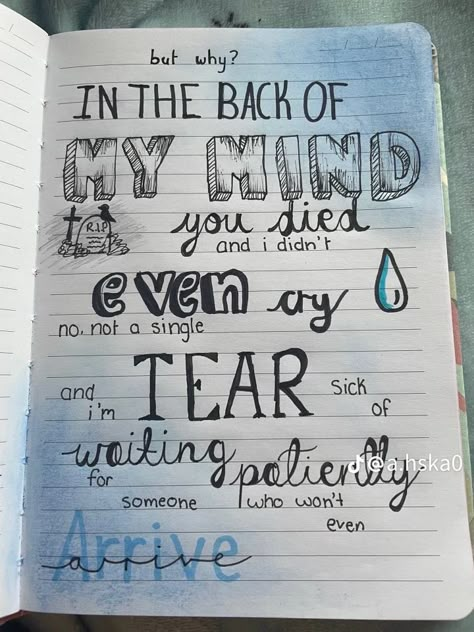 but why?
IN THE BACK OF
MY MIND
R.I.P
you died
and i didn't
even cry
no, not a single
and i'm TEAR sick of
waiting patiently
@a.hska0
for someone who won't even
Arrive
arrive